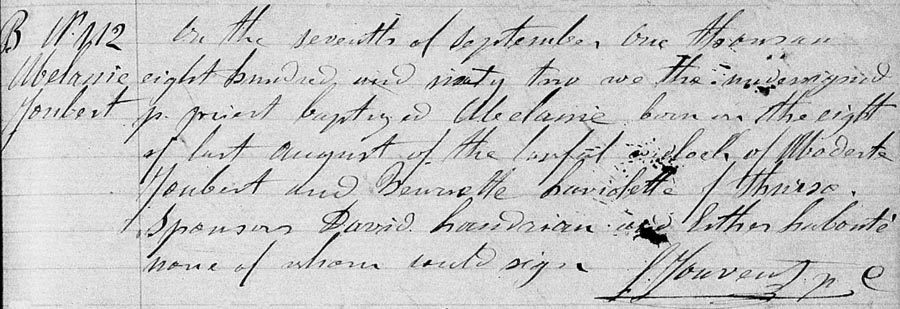 B N. 112
Melanie
Joubert
On the seventh of september one thousan
eight hundred and sixty two we the undersigned
p. priest baptized Melanie born on the eight
of last august of the lawful wedlock of Modeste
Joubert and Laviolette of thurso.
Sponsors David Landrian and Esther Labonté
none of whom could sign
Jouvent p